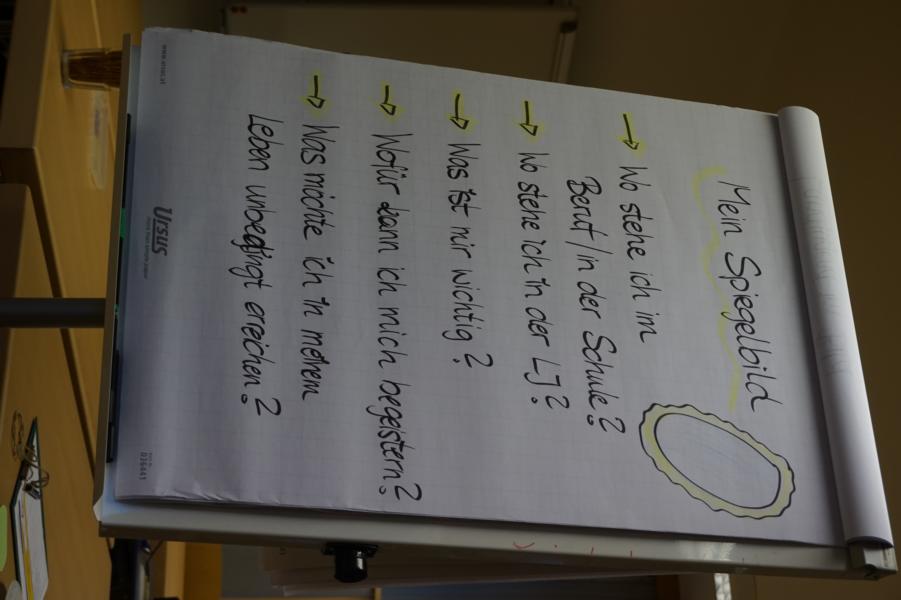 Mein Spiegelbild
→ Wo stehe ich im
Beruf / in der Schule?
→ Wo stehe ich in der LJ?
→ Was ist mir wichtig?
→ Wofür kann ich mich begeistern?
→ Was möchte ich in meinem
Leben unbedingt erreichen?
www.ursus.at
Ursus
036441